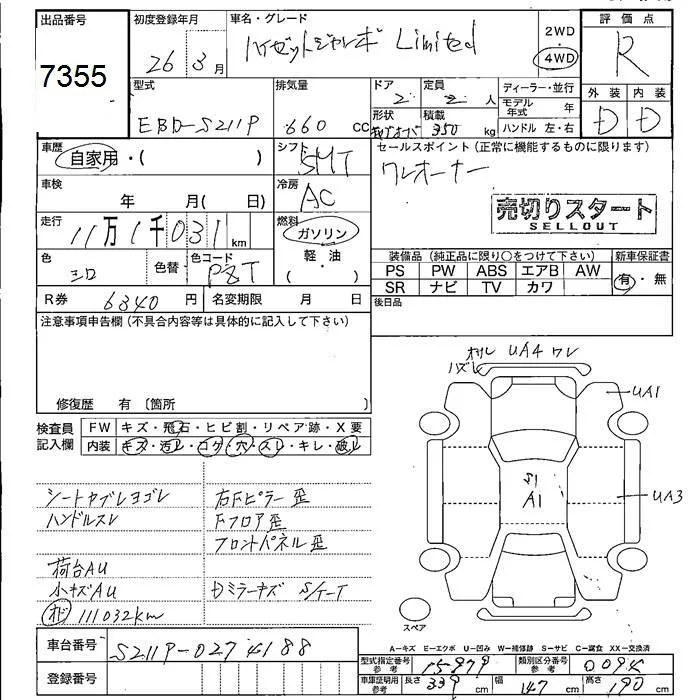 出品番号
7355
初度登録年月
26年3月
車名・グレード
ハイゼットジャンボ Limited
2WD
4WD
評価点
R
型式
EBD-S211P
排気量
660 cc
ドア
2
定員
2人
ディーラー・並行
モデル年式 年
ハンドル 左・右
形状
積載
350 kg
外装 内装
D D
車歴
自家用・( )
シフト
5MT
セールスポイント(正常に機能するものに限ります)
ワンオーナー
売切りスタート
SELLOUT
車検
年 月( 日)
冷房
AC
走行
11万1千031km
燃料
ガソリン
・軽油
( )
色
シロ
色替
色コード
R券 6340円
名変期限 月 日
装備品(純正品に限り○をつけて下さい)
PS PW ABS エアB AW
SR ナビ TV カワ
新車保証書
有・無
後日品
注意事項申告欄(不具合内容等は具体的に記入して下さい)
修復歴 有〔箇所 〕
検査員記入欄
FW キズ・飛石・ヒビ割・リペア跡・X要
内装 キズ・汚レ・コゲ・穴・スレ・キレ・破レ
シートヤブレヨゴレ
ハンドルスレ
荷台AU
小キズAU
111032km
右Fピラー歪
Fフロア歪
フロントパネル歪
DミラーキズS/T-T
ハズレ UA4 ワレ
UA1
S1
A1
UA3
スペア
A-キズ E-エクボ U-凹み W-補修跡 S-サビ C-腐食 XX-交換済
車台番号
S211P-0274188
登録番号
型式指定番号 参考
15879
類別区分番号 参考
車庫証明用 参考
長さ 339cm
幅 147cm
高さ 190cm